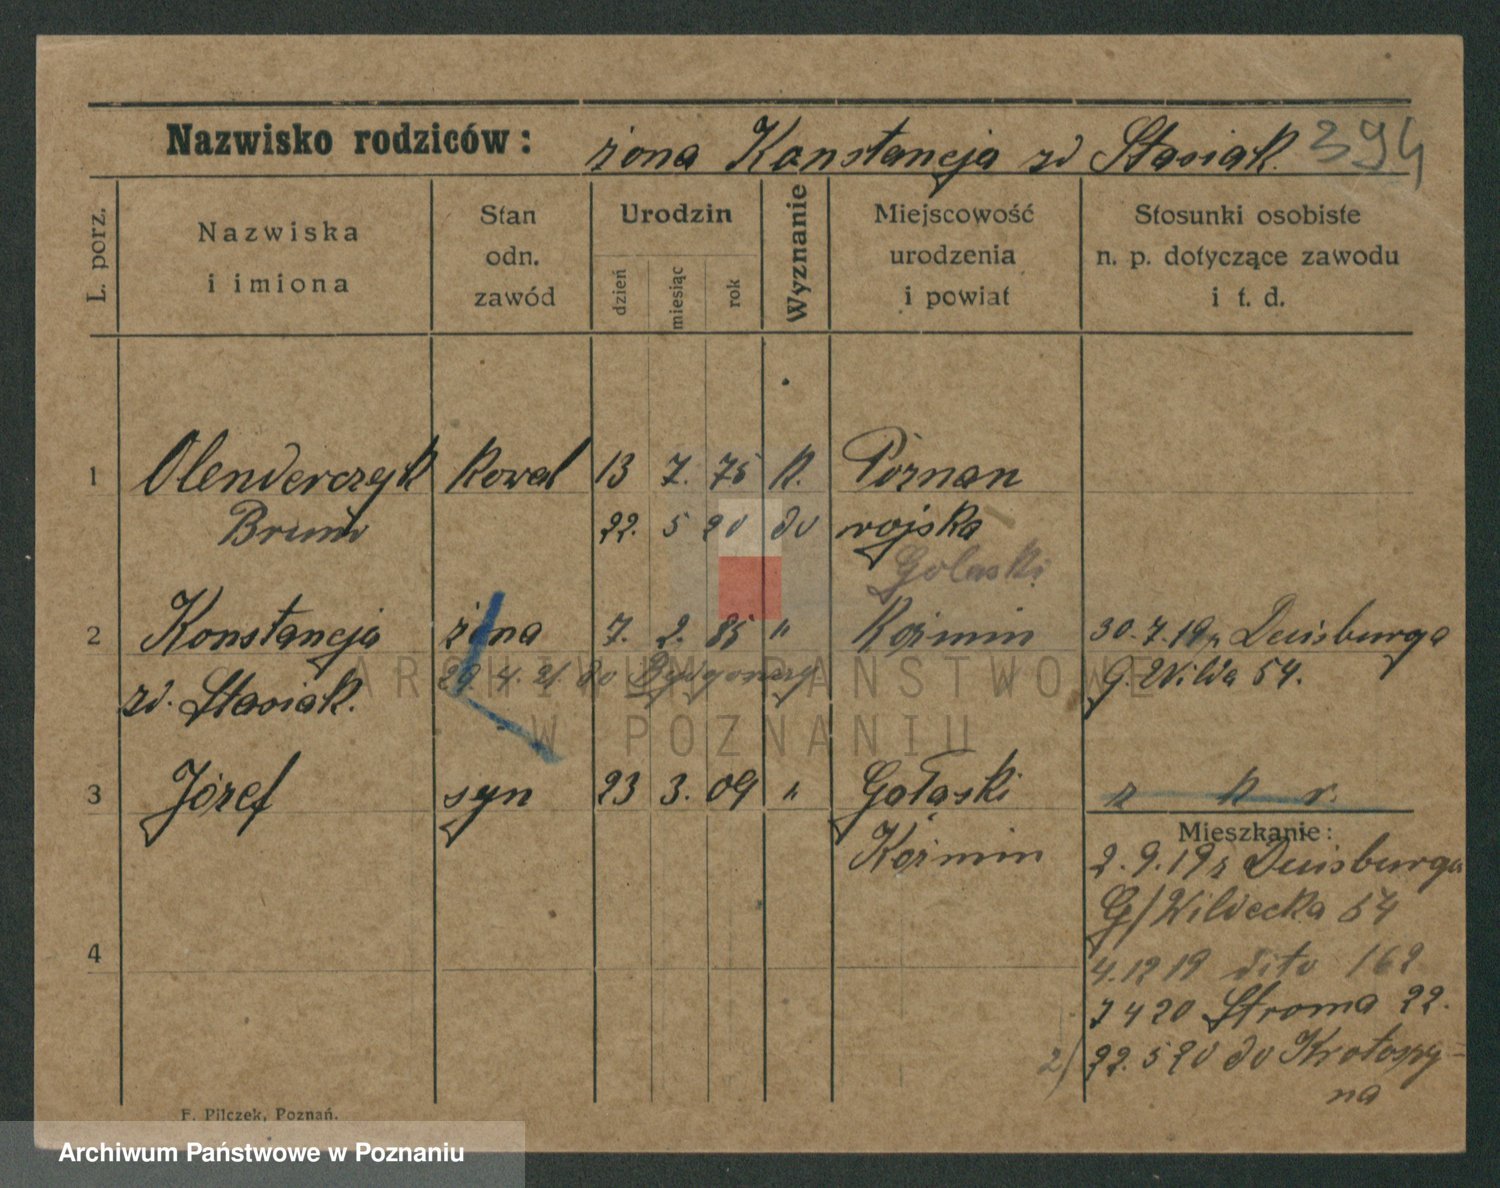 Nazwisko rodziców: żona Konstancja zd Stasiak. 394
L. porz.
Nazwiska
i imiona
Stan
odn.
zawód
Urodzin
dzień
miesiąc
rok
Wyznanie
Miejscowość
urodzenia
i powiat
Stosunki osobiste
n. p. dotyczące zawodu
i t. d.
1 Olenderczyk kowal 13 7. 75 k. Poznan
Bruno 22. 5 20 do wojska
Golaski
2 Konstancja żona 7. 2. 85 " Koźmin 30. 7. 19 z Duisburga
29. 4. 21. do Bydgoszczy G. Wilda 54.
zd. Stasiak.
3 Józef syn 23 3. 09 " Gołaski z k r.
Koźmin
Mieszkanie:
2. 9. 19 z Duisburga
G/Wildecka 54
4
4.12 19 dito 162
7 4 20 Stroma 22.
2) 22. 5 20 do Krotoszy-
na
F. Pilczek, Poznań.
ARCHIWUM PAŃSTWOWE
W POZNANIU
Archiwum Państwowe w Poznaniu